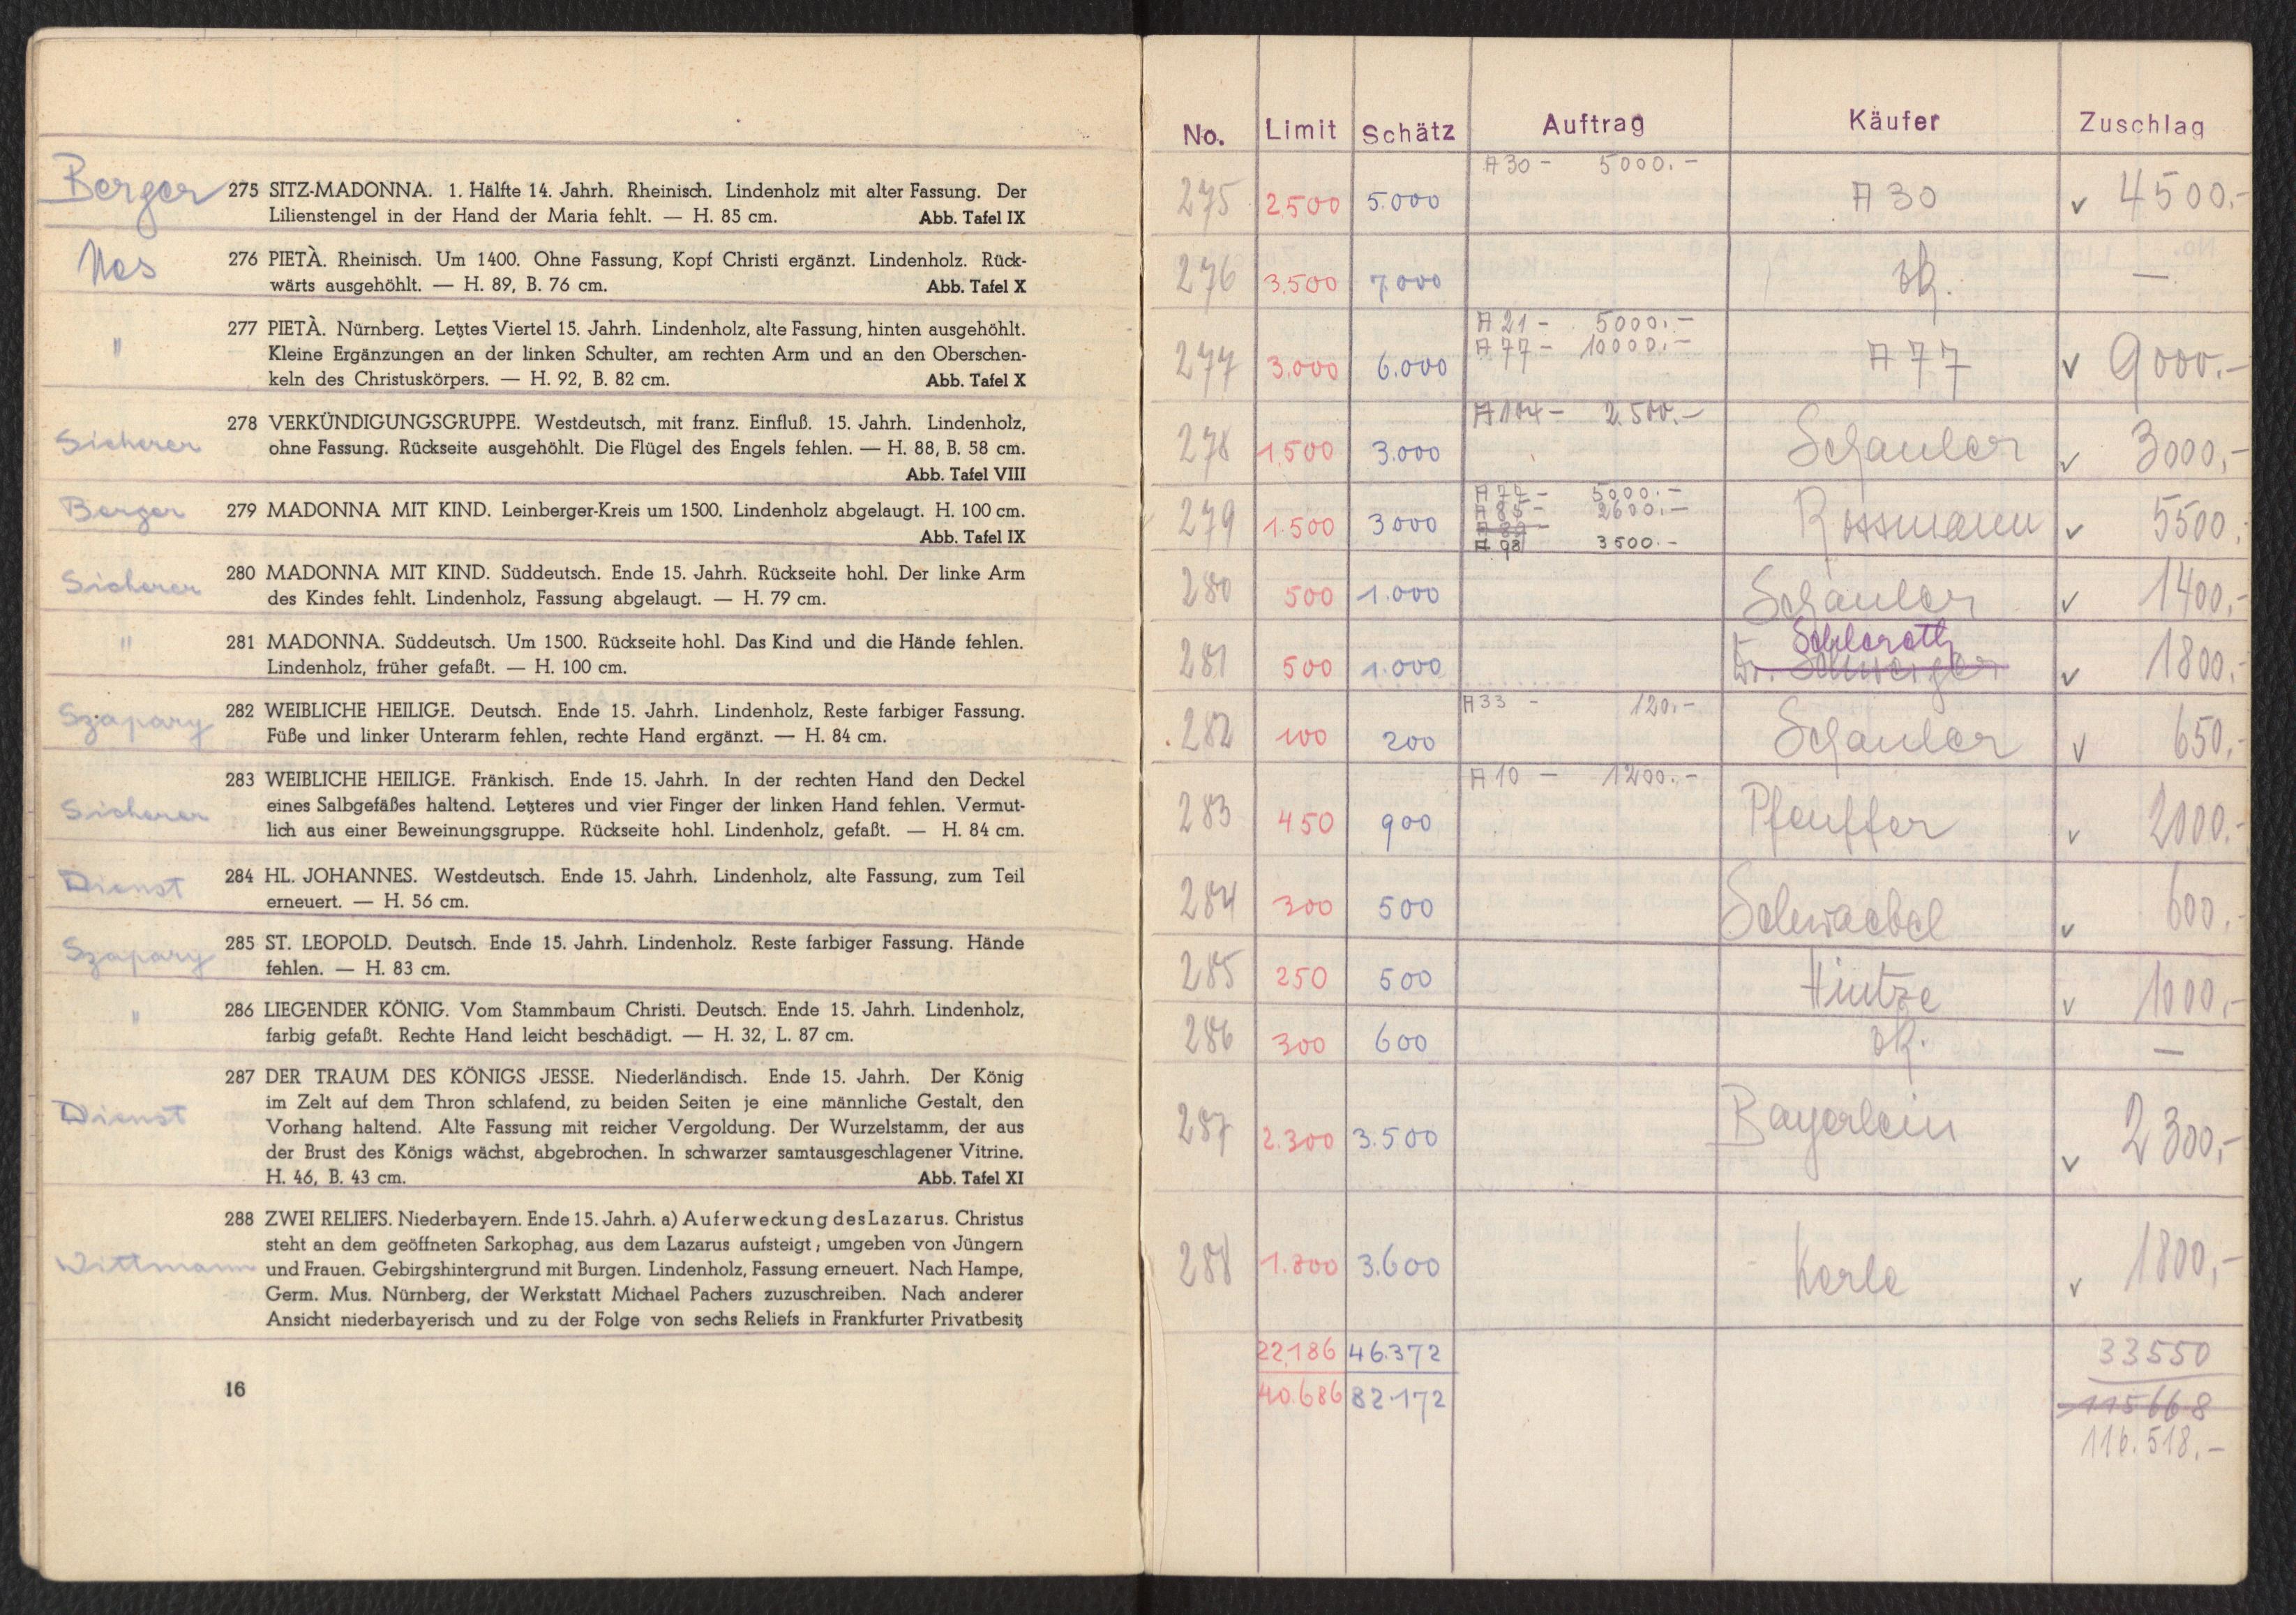 Berger
275 SITZ-MADONNA. 1. Hälfte 14. Jahrh. Rheinisch. Lindenholz mit alter Fassung. Der
Lilienstengel in der Hand der Maria fehlt. — H. 85 cm. Abb. Tafel IX
276 PIETÀ. Rheinisch. Um 1400. Ohne Fassung, Kopf Christi ergänzt. Lindenholz. Rück-
wärts ausgehöhlt. — H. 89, B. 76 cm. Abb. Tafel X
"
277 PIETÀ. Nürnberg. Letztes Viertel 15. Jahrh. Lindenholz, alte Fassung, hinten ausgehöhlt.
Kleine Ergänzungen an der linken Schulter, am rechten Arm und an den Oberschen-
keln des Christuskörpers. — H. 92, B. 82 cm. Abb. Tafel X
Sicherer
278 VERKÜNDIGUNGSGRUPPE. Westdeutsch, mit franz. Einfluß. 15. Jahrh. Lindenholz,
ohne Fassung. Rückseite ausgehöhlt. Die Flügel des Engels fehlen. — H. 88, B. 58 cm.
Abb. Tafel VIII
Berger
279 MADONNA MIT KIND. Leinberger-Kreis um 1500. Lindenholz abgelaugt. H. 100 cm.
Abb. Tafel IX
Sicherer
280 MADONNA MIT KIND. Süddeutsch. Ende 15. Jahrh. Rückseite hohl. Der linke Arm
des Kindes fehlt. Lindenholz, Fassung abgelaugt. — H. 79 cm.
"
281 MADONNA. Süddeutsch. Um 1500. Rückseite hohl. Das Kind und die Hände fehlen.
Lindenholz, früher gefaßt. — H. 100 cm.
Szapary
282 WEIBLICHE HEILIGE. Deutsch. Ende 15. Jahrh. Lindenholz, Reste farbiger Fassung.
Füße und linker Unterarm fehlen, rechte Hand ergänzt. — H. 84 cm.
Sicherer
283 WEIBLICHE HEILIGE. Fränkisch. Ende 15. Jahrh. In der rechten Hand den Deckel
eines Salbgefäßes haltend. Letzteres und vier Finger der linken Hand fehlen. Vermut-
lich aus einer Beweinungsgruppe. Rückseite hohl. Lindenholz, gefaßt. — H. 84 cm.
Dienst
284 HL. JOHANNES. Westdeutsch. Ende 15. Jahrh. Lindenholz, alte Fassung, zum Teil
erneuert. — H. 56 cm.
Szapary
285 ST. LEOPOLD. Deutsch. Ende 15. Jahrh. Lindenholz. Reste farbiger Fassung. Hände
fehlen. — H. 83 cm.
"
286 LIEGENDER KÖNIG. Vom Stammbaum Christi. Deutsch. Ende 15. Jahrh. Lindenholz,
farbig gefaßt. Rechte Hand leicht beschädigt. — H. 32, L. 87 cm.
Dienst
287 DER TRAUM DES KÖNIGS JESSE. Niederländisch. Ende 15. Jahrh. Der König
im Zelt auf dem Thron schlafend, zu beiden Seiten je eine männliche Gestalt, den
Vorhang haltend. Alte Fassung mit reicher Vergoldung. Der Wurzelstamm, der aus
der Brust des Königs wächst, abgebrochen. In schwarzer samtausgeschlagener Vitrine.
H. 46, B. 43 cm. Abb. Tafel XI
Wittmann
288 ZWEI RELIEFS. Niederbayern. Ende 15. Jahrh. a) Auferweckung des Lazarus. Christus
steht an dem geöffneten Sarkophag, aus dem Lazarus aufsteigt; umgeben von Jüngern
und Frauen. Gebirgshintergrund mit Burgen. Lindenholz, Fassung erneuert. Nach Hampe,
Germ. Mus. Nürnberg, der Werkstatt Michael Pachers zuzuschreiben. Nach anderer
Ansicht niederbayerisch und zu der Folge von sechs Reliefs in Frankfurter Privatbesitz
16
No. Limit Schätz Auftrag Käufer Zuschlag
A 30 - 5000.-
275 2.500 5.000 A 30 v 4500.-
276 3.500 7.000 —
A 21 - 5000.-
A 77 - 10000.-
277 3.000 6.000 A 77 v 9000.-
A 104 - 2.500.-
278 1.500 3.000 Schauler v 3000,-
A 77 - 5000.-
A 85 - 2600.-
A 98 3500.-
279 1.500 3000 Rossmann v 5500.
280 500 1.000 Schauler v 1400,-
Schleroth
281 500 1.000 Dr. v 1800.-
A 33 - 120.-
282 100 200 Schauler v 650.-
A 10 - 1200.-
283 450 900 Pfeuffer v 2000.-
284 300 500 Schwaebel v 600.-
285 250 500 Hintze v 1000,-
286 300 600 —
287 2.300 3.500 Bayerlein v 2300,-
288 1.800 3.600 Kerle v 1800,-
22.186 46.372 33550
40.686 82.172 115668
116.518.-